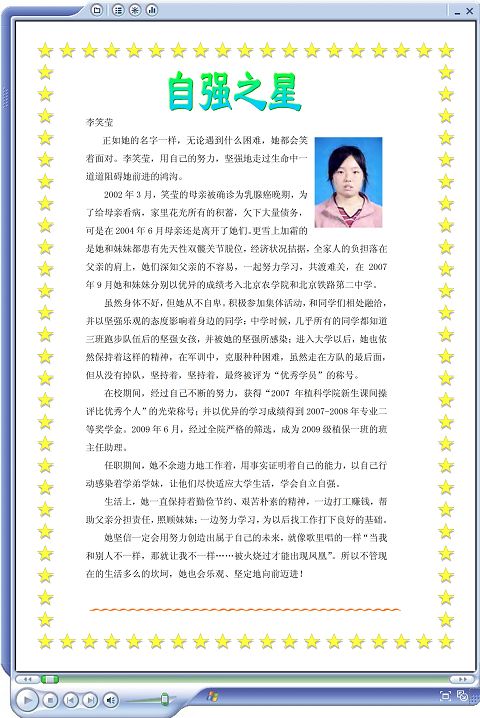 自强之星
李笑莹
正如她的名字一样，无论遇到什么困难，她都会笑
着面对。李笑莹，用自己的努力，坚强地走过生命中一
道道阻碍她前进的鸿沟。
2002 年 3 月，笑莹的母亲被确诊为乳腺癌晚期，为
了给母亲看病，家里花光所有的积蓄，欠下大量债务，
可是在 2004 年 6 月母亲还是离开了她们。更雪上加霜的
是她和妹妹都患有先天性双髋关节脱位，经济状况拮据，全家人的负担落在
父亲的肩上，她们深知父亲的不容易，一起努力学习，共渡难关，在 2007
年 9 月她和妹妹分别以优异的成绩考入北京农学院和北京铁路第二中学。
虽然身体不好，但她从不自卑。积极参加集体活动，和同学们相处融洽，
并以坚强乐观的态度影响着身边的同学：中学时候，几乎所有的同学都知道
三班跑步队伍后的坚强女孩，并被她的坚强所感染；进入大学以后，她也依
然保持着这样的精神，在军训中，克服种种困难，虽然走在方队的最后面，
但从没有掉队，坚持着，坚持着，最终被评为“优秀学员”的称号。
在校期间，经过自己不断的努力，获得“2007 年植科学院新生课间操
评比优秀个人”的光荣称号；并以优异的学习成绩得到 2007-2008 年专业二
等奖学金。2009 年 6 月，经过全院严格的筛选，成为 2009 级植保一班的班
主任助理。
任职期间，她不余遗力地工作着，用事实证明着自己的能力，以自己行
动感染着学弟学妹，让他们尽快适应大学生活，学会自立自强。
生活上，她一直保持着勤俭节约、艰苦朴素的精神，一边打工赚钱，帮
助父亲分担责任，照顾妹妹；一边努力学习，为以后找工作打下良好的基础。
她坚信一定会用努力创造出属于自己的未来，就像歌里唱的一样“当我
和别人不一样，那就让我不一样……被火烧过才能出现凤凰”。所以不管现
在的生活多么的坎坷，她也会乐观、坚定地向前迈进！